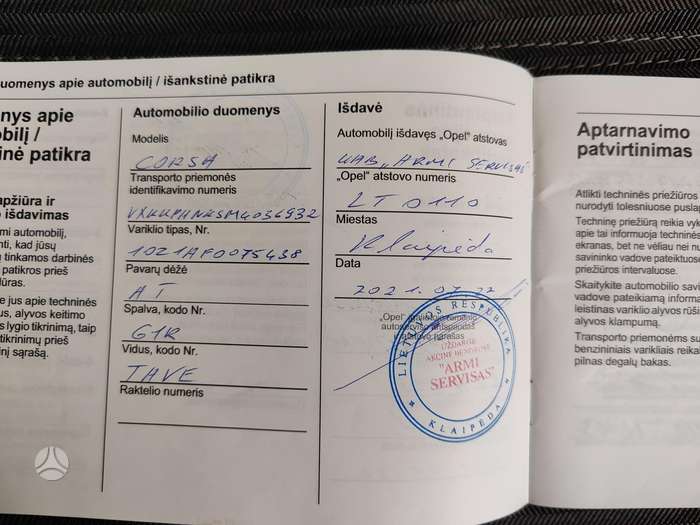 uomenys apie automobilį / išankstinė patikra
nys apie
obilį /
inė patikra
apžiūra ir
o išdavimas
mi automobilį,
nti, kad jūsų
i tinkamos darbinės
patikros prieš
e jus apie techninės
us, alyvos keitimo
s lygio tikrinimą, taip
tikrinimų prieš
inį sąrašą.
Automobilio duomenys
Modelis
CORSA
Transporto priemonės
identifikavimo numeris
Variklio tipas, Nr.
Pavarų dėžė
AT
Spalva, kodo Nr.
G1R
Vidus, kodo Nr.
TAVE
Raktelio numeris
Išdavė
Automobilį išdavęs „Opel“ atstovas
UAB „ARMI SERVISAS“
„Opel“ atstovo numeris
LT 0110
Miestas
Klaipėda
Data
2021. 07. 22
LIETUVOS RESPUBLIKA
UŽDAROJI
AKCINĖ BENDROVĖ
"ARMI
SERVISAS"
KLAIPĖDA
Aptarnavimo
patvirtinimas
Atlikti techninės priežiūros
nurodyti tolesniuose puslap
Techninę priežiūrą reikia vyk
apie tai informuoja techninės
ekranas, bet ne vėliau nei nu
savininko vadove pateiktuose
priežiūros intervaluose.
Skaitykite automobilio savi
vadove pateikiamą informac
leistinas variklio alyvos rūši
alyvos klampumą.
Transporto priemonėms su
benzininiais varikliais reikia
pilnas degalų bakas.